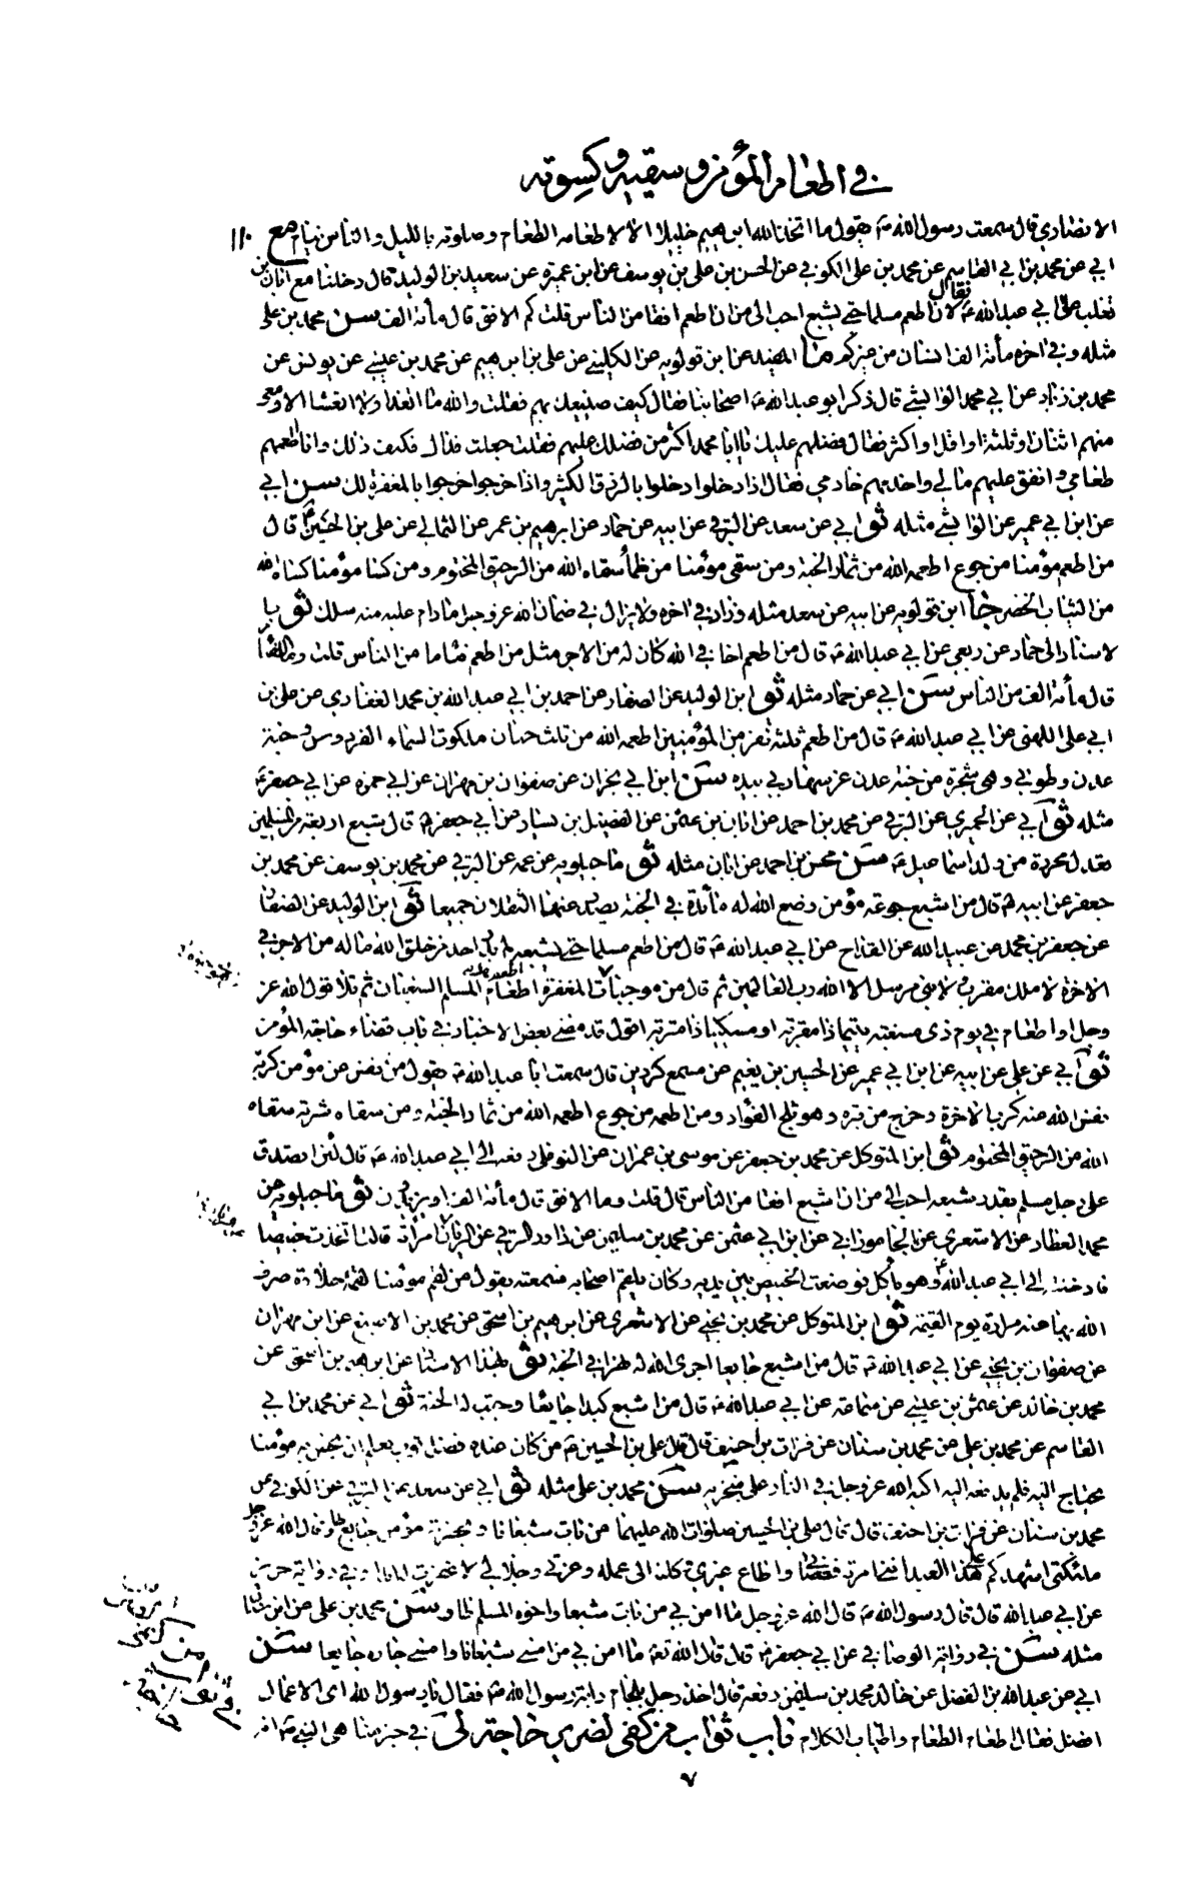 في اطعام المؤمن وسقيه وكسوته
الانصاري قال سمعت رسول الله ص يقول ما اتخذ الله ابرهيم خليلا الا لاطعامه الطعام وصلوته بالليل والناس نيام مع ١١٠
ابي عن محمد بن ابي القاسم عن محمد بن علي الكوفي عن الحسن بن علي بن يوسف عن ابن عميرة عن سعيد بن الوليد قال دخلنا مع ابان بن
تغلب على ابي عبد الله ع فقال لان اطعم مسلما حتى يشبع احب الي من ان اطعم افقا من الناس قلت كم الافق قال مائة الف سن محمد بن علي
مثله وفي اخره مائة الف انسان من غيركم ما المفيد عن ابن قولويه عن الكليني عن علي بن ابرهيم عن محمد بن عيسى عن يونس عن
محمد بن زياد عن ابي محمد الوابشي قال ذكر ابو عبد الله ع اصحابنا فقال كيف صنيعك بهم فقلت والله ما اتغدا ولا اتعشا الا ومعي
منهم اثنان او ثلثة او اقل او اكثر فقال فضلهم عليك يا ابا محمد اكثر من فضلك عليهم فقلت جعلت فداك فكيف ذلك وانا اطعمهم
طعامي وانفق عليهم مالي واخدمهم خادمي فقال اذا دخلوا دخلوا بالرزق الكثير واذا خرجوا خرجوا بالمغفرة لك سن ابي
عن ابن ابي عمير عن الوابشي مثله ثو ابي عن سعد عن البرقي عن ابيه عن حماد عن ابرهيم بن عمر عن الثمالي عن علي بن الحسين ع قال
من اطعم مؤمنا من جوع اطعمه الله من ثمار الجنة ومن سقى مؤمنا من ظمأ سقاه الله من الرحيق المختوم ومن كسا مؤمنا كساه الله
من الثياب الخضر جا ابن قولويه عن ابيه عن سعد مثله وزاد في اخره ولا يزال في ضمان الله عز وجل ما دام عليه منه سلك ثو با
لاسناد الى حماد عن ربعي عن ابي عبد الله ع قال من اطعم اخا في الله كان له من الاجر مثل من اطعم فئاما من الناس قلت وما الفئام
قال مائة الف من الناس سن ابي عن حماد مثله ثو ابن الوليد عن الصفار عن احمد بن ابي عبد الله بن محمد الغفاري عن علي بن
ابي علي اللهبي عن ابي عبد الله ع قال من اطعم ثلثة نفر من المؤمنين اطعمه الله من ثلث جنان ملكوت السماء الفردوس وجنة
عدن وطوبى وهي شجرة من جنة عدن غرسها ربي بيده سن ابن ابي نجران عن صفوان بن مهران عن ابي حمزه عن ابي جعفر ع
مثله ثو ابي عن الحميري عن البرقي عن محمد بن احمد عن ابان بن عثمن عن الفضيل بن يسار عن ابي جعفر ع قال شبع اربعة من المسلمين
يعدل محررة من ولد اسماعيل ع سن محسن بن احمد عن ابان مثله ثو ماجيلويه عن عمه عن البرقي عن محمد بن يوسف عن محمد بن
جعفر عن ابيه ع قال من اشبع جوعة مؤمن وضع الله له مائدة في الجنة يصدر عنها الثقلان جميعا ثو ابن الوليد عن الصفار
عن جعفر بن محمد عن عبيد الله عن القداح عن ابي عبد الله ع قال من اطعم مسلما حتى يشبعه لم يدر احد من خلق الله ماله من الاجر في
الاخرة لا ملك مقرب ولا نبي مرسل الا الله رب العالمين ثم قال من موجبات المغفرة اطعام المسلم السغبان ثم تلا قول الله عز
وجل او اطعام في يوم ذي مسغبة يتيما ذا مقربة او مسكينا ذا متربة اقول قد مضى بعض الاخبار في باب قضاء حاجة المؤمن
ثو ابي عن علي عن ابيه عن ابن ابي عمير عن الحسين بن نعيم عن مسمع كردين قال سمعت ابا عبد الله ع يقول من نفس عن مؤمن كربة
نفس الله عنه كرب الاخرة وخرج من قبره وهو ثلج الفؤاد ومن اطعمه من جوع اطعمه الله من ثمار الجنة ومن سقاه شربة سقاه
الله من الرحيق المختوم ثو ابن المتوكل عن محمد بن جعفر عن موسى بن عمران عن النوفلي رفعه الى ابي عبد الله ع قال لئن اتصدق
على رجل مسلم بقدر شبعه احب الي من ان اشبع افقا من الناس قال قلت وما الافق قال مائة الف او يزيدون ثو ماجيلويه عن
محمد العطار عن الاشعري عن الجاموراني عن ابن ابي عثمن عن محمد بن سليمن عن داود الرقي عن الرباب امرأته قالت اتخذت خبيصا
فادخلته الى ابي عبد الله ع وهو يأكل فوضعت الخبيص بين يديه وكان يلقم اصحابه فسمعته يقول من لقم مؤمنا لقمة حلاوة صرف
الله بها عنه مرارة يوم القيمة ثو ابن المتوكل عن محمد بن يحيى عن الاشعري عن ابرهيم بن اسحق عن محمد بن الاصبغ عن ابن مهران
عن صفوان بن يحيى عن ابي عبد الله ع قال من اشبع جايعا اجرى الله له نهرا في الجنة ثو بهذا الاسناد عن ابرهيم بن اسحق عن
محمد بن خالد عن عثمن بن عيسى عن سماعة عن ابي عبد الله ع قال من اشبع كبدا جايعا وجبت له الجنة ثو ابي عن محمد بن ابي
القاسم عن محمد بن علي عن محمد بن سنان عن فرات بن احنف قال قال علي بن الحسين ع من كان عنده فضل ثوب يعلم ان بحضرته مؤمنا
محتاج اليه فلم يدفعه اليه اكبه الله عز وجل في النار على منخريه سن محمد بن علي مثله ثو ابي عن سعد عن البرقي عن الكوفي عن
محمد بن سنان عن فرات بن احنف قال قال علي بن الحسين صلوات الله عليهما من بات شبعانا وبحضرته مؤمن جايع طاو قال الله عز وجل
ملئكتي اشهدكم على هذا العبد انني امرته فعصاني واطاع غيري وكلته الى عمله وعزتي وجلالي لا غفرت له ابدا وفي رواية حريز
عن ابي عبد الله قال قال رسول الله ص قال الله عز وجل ما امن بي من بات شبعا واخوه المسلم طاو سن محمد بن علي عن ابن سنان
مثله سن في رواية الوصافي عن ابي جعفر ع قال قال الله تع ما امن بي من امسى شبعانا وامسى جاره جايعا سن
ابي عن عبد الله بن الفضل عن خالد محمد بن سليمن رفعه قال اخذ رجل بلجام دابة رسول الله ص فقال يا رسول الله اي الاعمال
افضل فقال اطعام الطعام واطياب الكلام باب ثواب من كفى لضرير حاجة لي في خبر مناهي النبي ص انه
٧